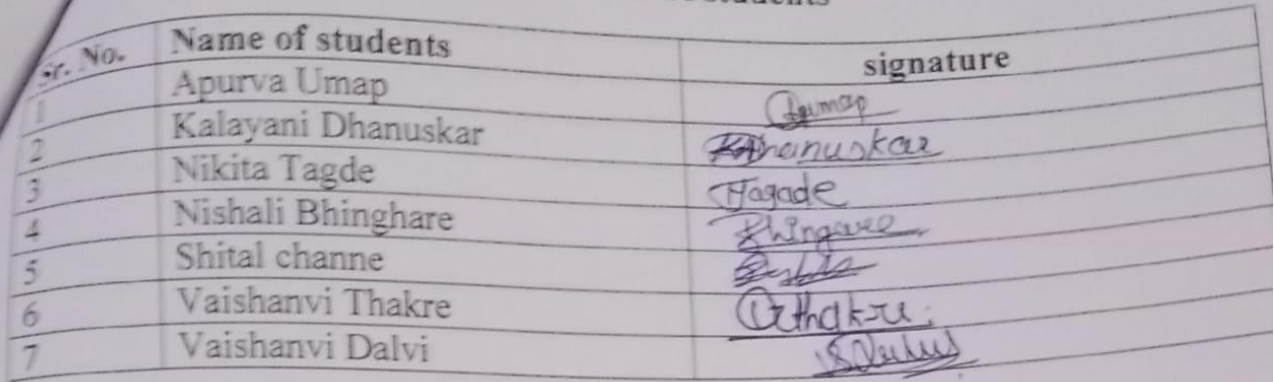 students
Sr. No. Name of students signature
1 Apurva Umap
2 Kalayani Dhanuskar Dhanuskar
3 Nikita Tagde Tagade
4 Nishali Bhinghare Bhingare
5 Shital channe
6 Vaishanvi Thakre
7 Vaishanvi Dalvi